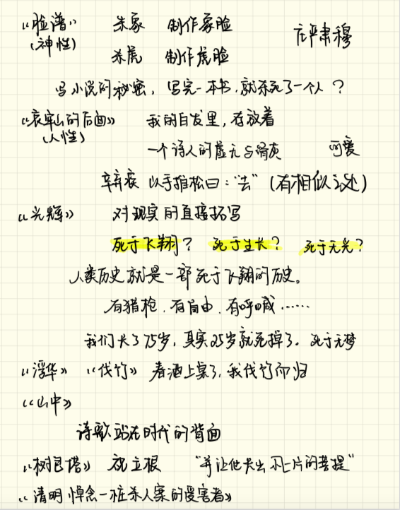 《脸谱》 朱豪 制作豪脸 庄严肃穆
(神性) 杀虎 制作虎脸
写小说的秘密，写完一本书，就杀死了一个人？
《哀牢山的后面》 我的白发里，存放着
(人性) 一个诗人的虚无与骨灰 可爱
辛弃疾 以手推松曰："去" (有相似之处)
《光辉》 对现实的直接描写
死于飞翔？ 死于生长？ 死于无光？
人类历史就是一部死于飞翔的历史。
有猎枪，有自由，有呼喊……
我们大了75岁，其实25岁就死掉了。死于无梦
《浮华》 《伐竹》 春酒上桌了，我伐竹而归
《山中》
诗歌站在时代的背面
《树艮塔》 成立根 "并让他长出一片的菩提"
《清明 悼念一桩杀人案的受害者》